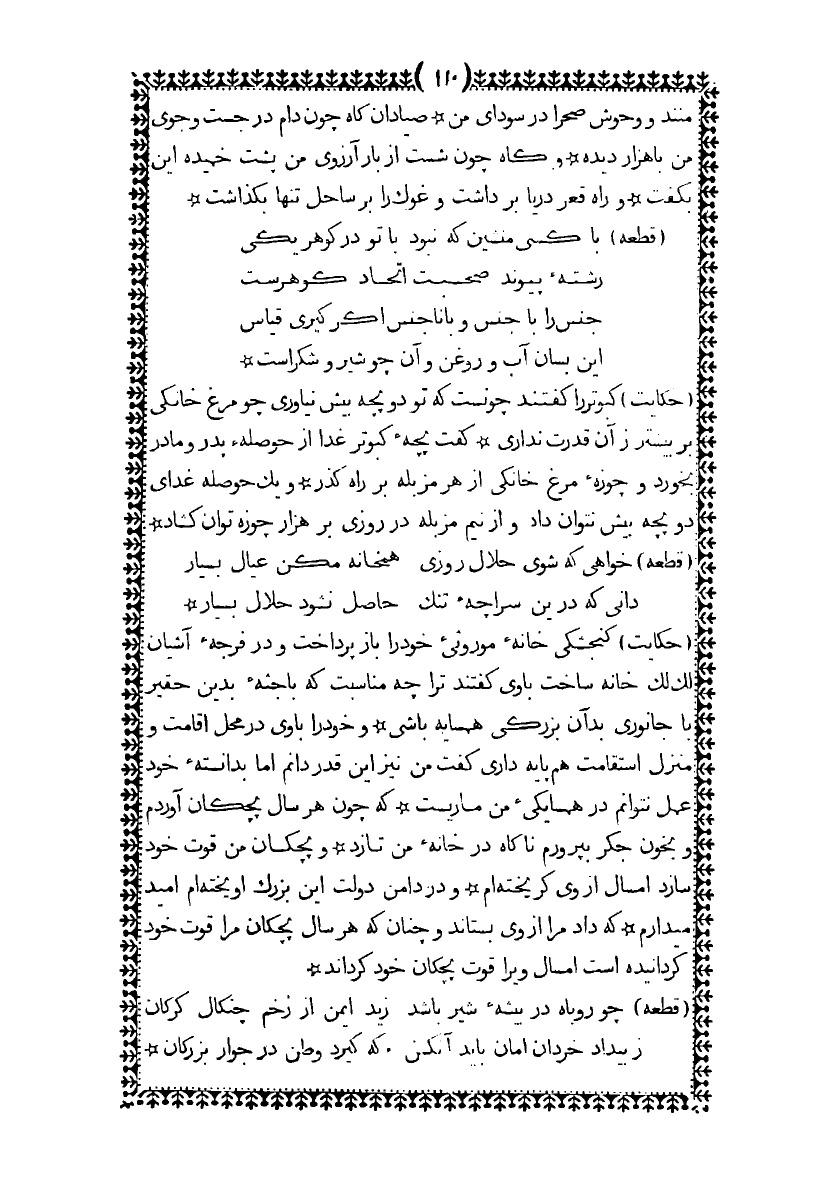 (۱۱۰)
مند و وحوش صحرا در سودای من * صیادان کاه چون دام در جست وجوی
من باهزار دیده * و کاه چون شست از بار آرزوی من پشت خمیده این
بکفت * و راه قعر دریا بر داشت و غوك را بر ساحل تنها بکذاشت *
(قطعه) با کسی منشین که نبود با تو در کوهر یکی
رشتهٔ پیوند صحبت اتّحاد کوهرست
جنس را با جنس و باناجنس اکر کیری قیاس
این بسان آب و روغن و آن چو شیر و شکراست *
(حکایت) کبوتررا کفتند چونست که تو دو بچه بیش نیاوری چو مرغ خانکی
بر بیشتر ز آن قدرت نداری * کفت بچهٔ کبوتر غدا از حوصلهٔ پدر و مادر
بخورد و چوزهٔ مرغ خانکی از هر مزبله بر راه کذر * و یك حوصله غدای
دو بچه بیش نتوان داد و از نیم مزبله در روزی بر هزار چوزه توان کشاد *
(قطعه) خواهی که شوی حلال روزی همخانه مکن عیال بسیار
دانی که درین سراچهٔ تنك حاصل نشود حلال بسیار *
(حکایت) کنجشکی خانهٔ موروثیٔ خودرا باز پرداخت و در فرجهٔ آشیان
لك لك خانه ساخت باوی کفتند ترا چه مناسبت که باجثهٔ بدین حقیر
با جانوری بدآن بزرکی همسایه باشی * و خودرا باوی در محل اقامت و
منزل استقامت هم پایه داری کفت من نیز این قدر دانم اما بدانستهٔ خود
عمل نتوانم در همسایکیٔ من ماریست * که چون هر سال بچکان آوردم
و بخون جکر بپرورم ناکاه در خانهٔ من تازد * و بچکان من قوت خود
سازد امسال از وی کریخته‌ام * و در دامن دولت این بزرك اویخته‌ام امید
میدارم * که داد مرا از وی بستاند و چنان که هر سال بچکان مرا قوت خود
کردانیده است امسال ویرا قوت بچکان خود کرداند *
(قطعه) چو روباه در بیشهٔ شیر باشد زید ایمن از زخم چنکال کرکان
ز بیداد خردان امان یابد آنکس . که کیرد وطن در جوار بزرکان *